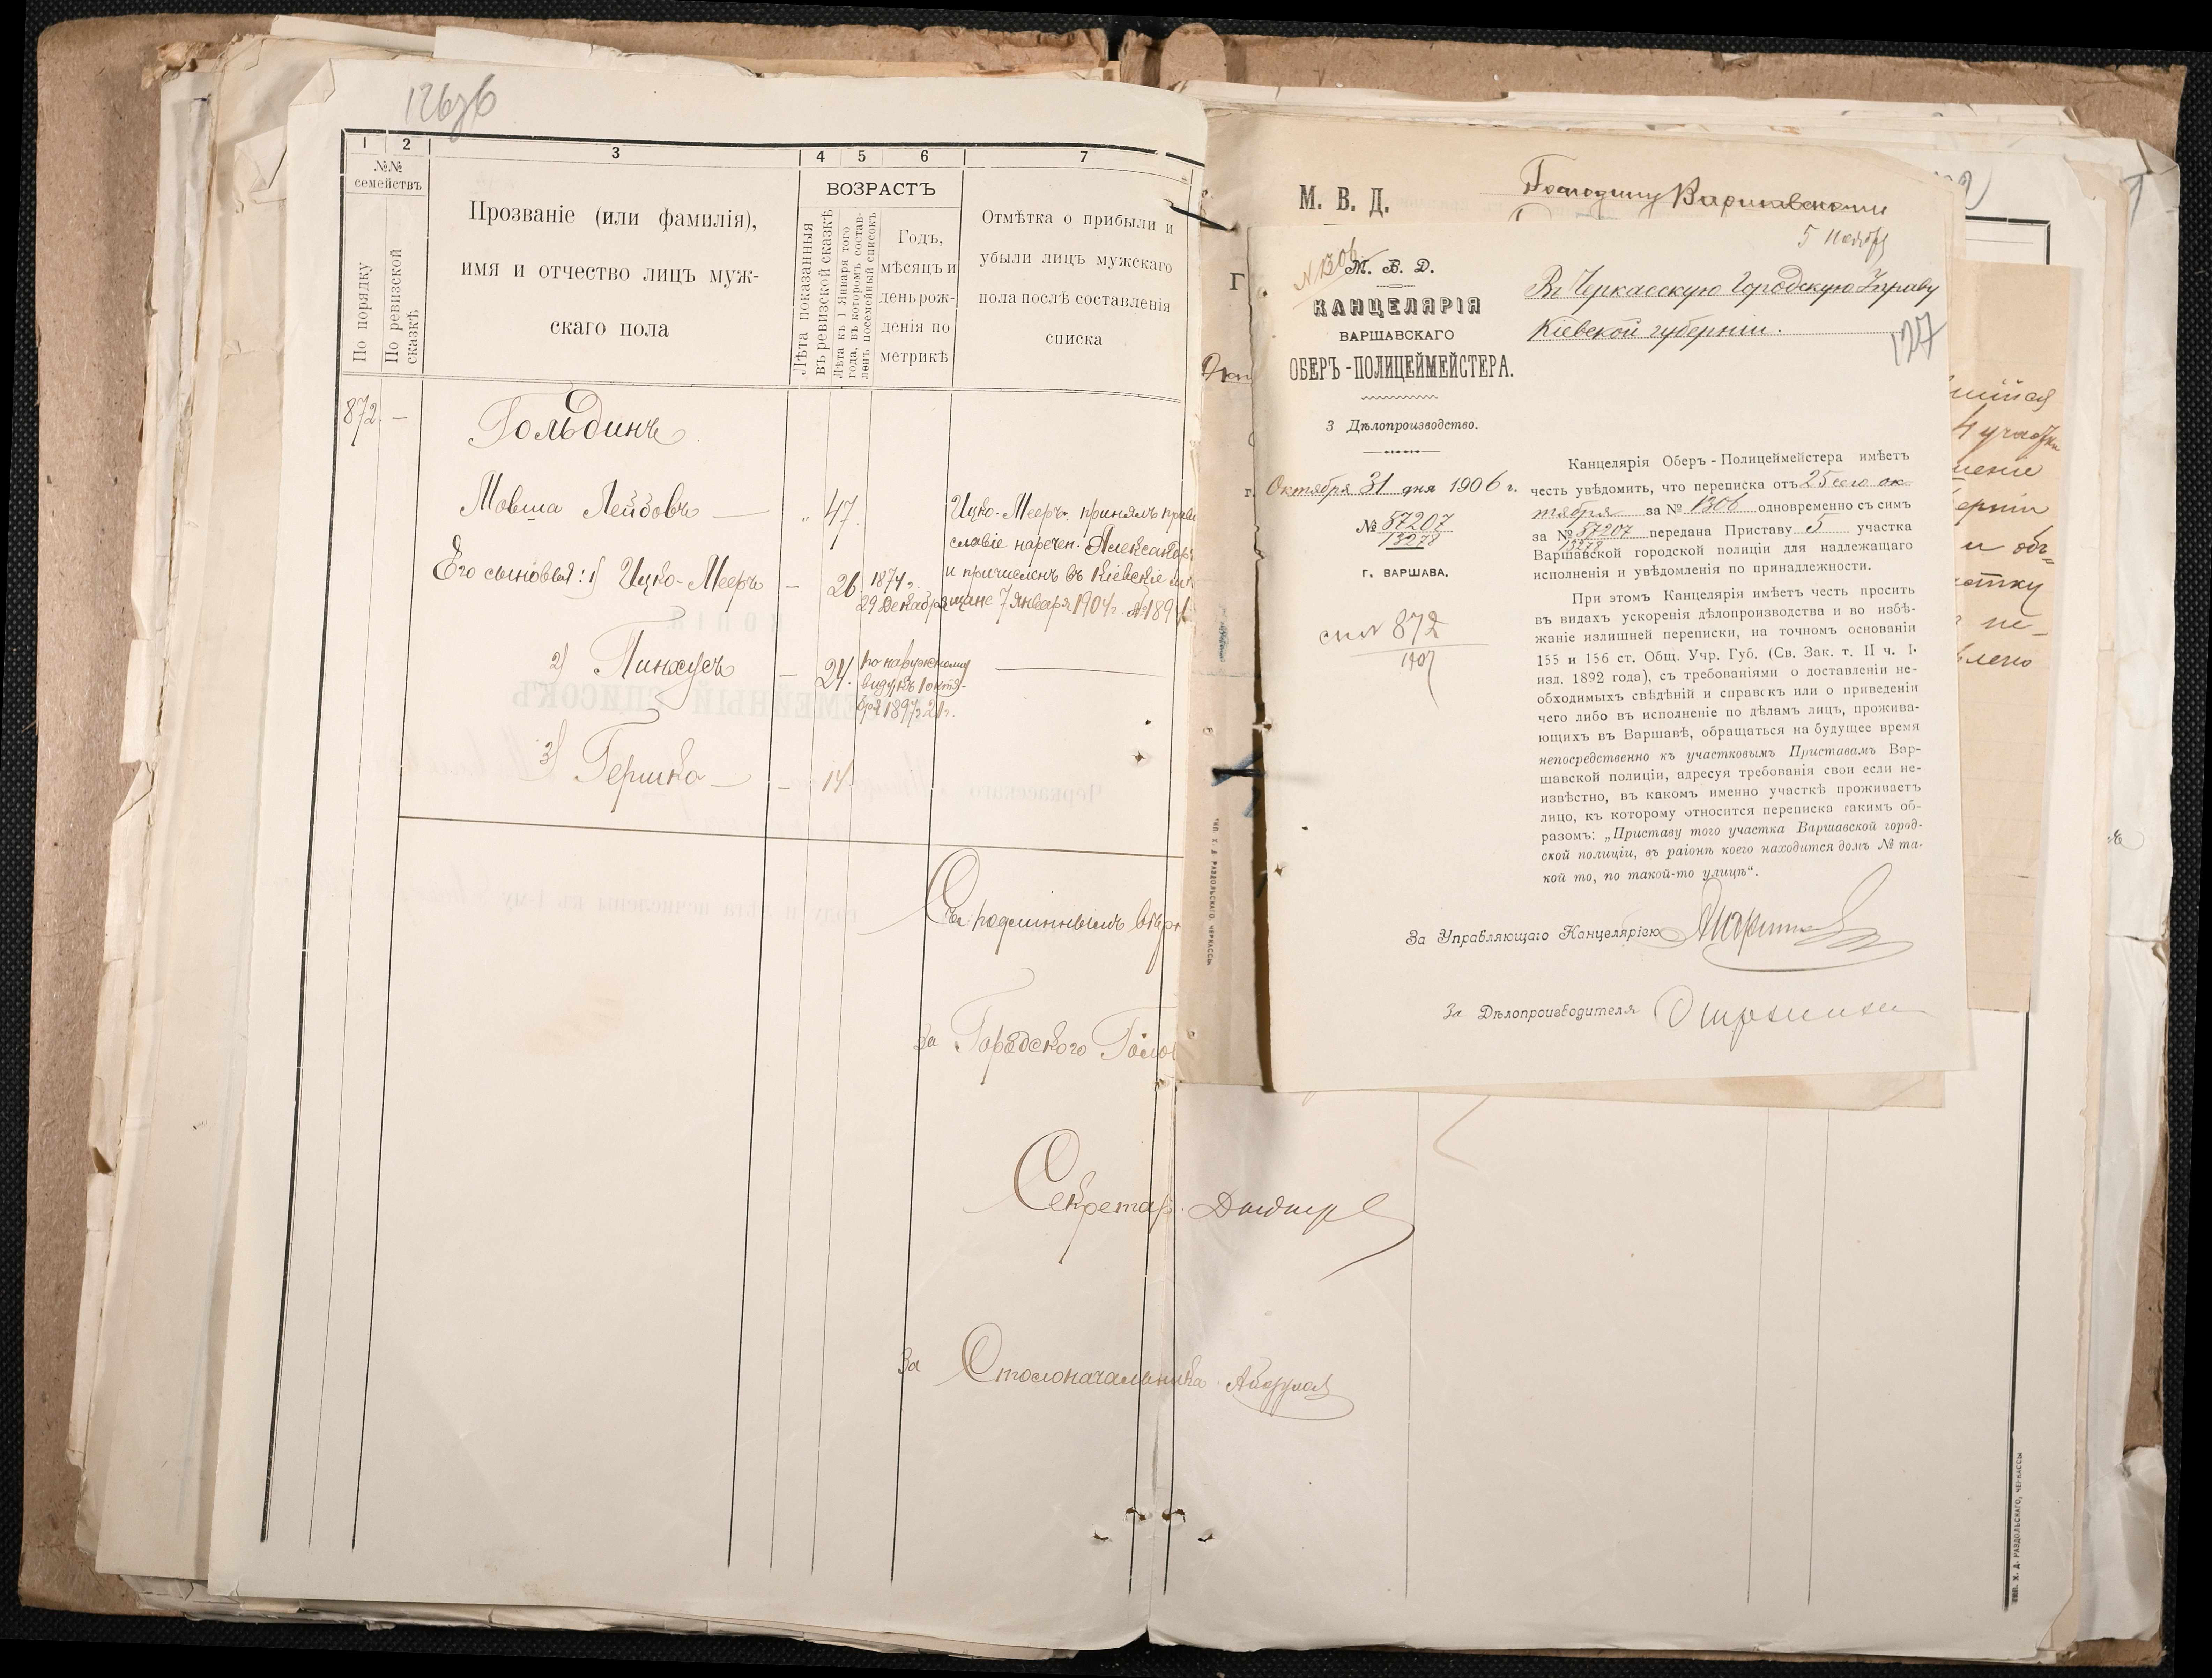 126об
1 2 3 4 5 6 7
№№ семействъ
По порядку
По ревизской сказкѣ
Прозваніе (или фамилія),
имя и отчество лицъ муж-
скаго пола
ВОЗРАСТЪ
Лѣта показанныя
въ ревизской сказкѣ
Лѣта къ 1 Января того
года, въ которомъ состав-
ленъ посемейный списокъ
Годъ,
мѣсяцъ и
день рож-
денія по
метрикѣ
Отмѣтка о прибыли и
убыли лицъ мужскаго
пола послѣ составленія
списка
872. — Гольдинъ
Мовша Лейбовъ — „ 47.
Его сыновья: 1) Ицко-Мееръ — 26. 1874 г.
29 Декабря
Ицко-Мееръ принялъ право
славіе наречен. Александр
и причисленъ въ Кіевскіе мѣ
щане 7 Января 1904 г. № 189
2) Пинхусъ — 24. по наружному
виду въ 1 октя-
бря 1897 г. 21 г.
3) Гершко — — 14
Съ подлиннымъ вѣрн
За Городского Голов
Секретар.
За Столоначальника
М. В. Д.
Господину Варшавскому
5 Ноября
№ 1306
М. В. Д.
КАНЦЕЛЯРІЯ
ВАРШАВСКАГО
ОБЕРЪ-ПОЛИЦЕЙМЕЙСТЕРА.
3 Дѣлопроизводство.
Октября 31 дня 1906 г.
№ 57207
13278
Г. ВАРШАВА.
872
1907
Въ Черкасскую Городскую Управу
Кіевской губерніи.
127
Канцелярія Оберъ-Полицеймейстера имѣетъ
честь увѣдомить, что переписка отъ 25 сего ок-
тября за № 1306 одновременно съ симъ
за № 57207 передана Приставу 5 участка
13278
Варшавской городской полиціи для надлежащаго
исполненія и увѣдомленія по принадлежности.
При этомъ Канцелярія имѣетъ честь просить
въ видахъ ускоренія дѣлопроизводства и во избѣ-
жаніе излишней переписки, на точномъ основаніи
155 и 156 ст. Общ. Учр. Губ. (Св. Зак. т. II ч. I.
изд. 1892 года), съ требованіями о доставленіи не-
обходимыхъ свѣдѣній и справскъ или о приведеніи
чего либо въ исполненіе по дѣламъ лицъ, прожива-
ющихъ въ Варшавѣ, обращаться на будущее время
непосредственно къ участковымъ Приставамъ Вар-
шавской полиціи, адресуя требованія свои если не-
извѣстно, въ какомъ именно участкѣ проживаетъ
лицо, къ которому относится переписка гакимъ об-
разомъ: „Приставу того участка Варшавской город-
ской полиціи, въ раіонѣ коего находится домъ № та-
кой то, по такой-то улицѣ“.
За Управляющаго Канцеляріею
За Дѣлопроизводителя
ТИП. Х. Д. РАЗДОЛЬСКАГО, ЧЕРКАССЫ.
4 участка
ТИП. Х. Д. РАЗДОЛЬСКАГО, ЧЕРКАССЫ